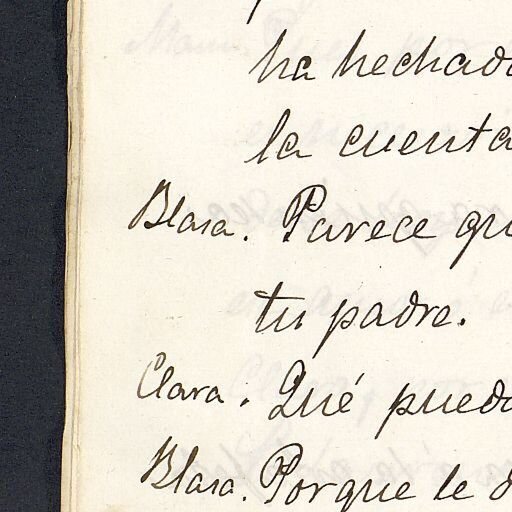 ha hechado
la cuenta
Blasa. Parece qu
tu padre.
Clara. Qué pued
Blasa. Porque le